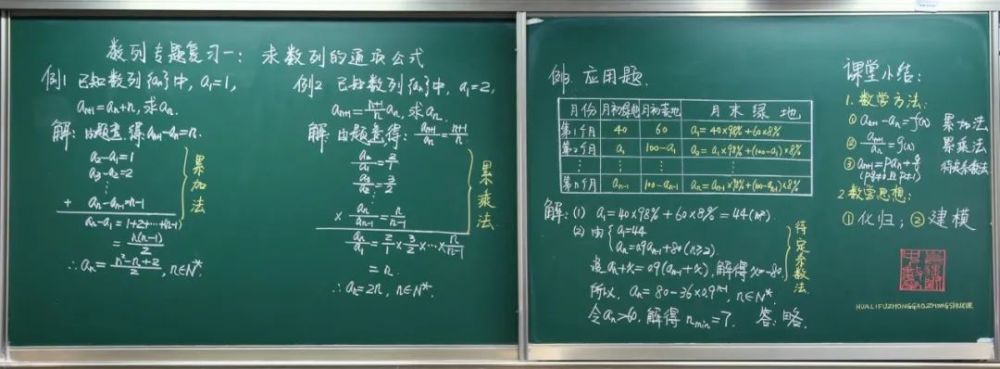 数列专题复习一：求数列的通项公式
例1 已知数列{aₙ}中，a₁=1，
aₙ₊₁=aₙ+n，求aₙ.
解：由题意，得aₙ₊₁-aₙ=n.
a₂-a₁=1
a₃-a₂=2
⋮
+ aₙ-aₙ₋₁=n-1
aₙ-a₁=1+2+…+(n-1)
=n(n-1)/2
∴aₙ=(n²-n+2)/2，n∈N*.
累加法
例2 已知数列{aₙ}中，a₁=2，
aₙ₊₁=(n+1)/n aₙ，求aₙ.
解：由题意，得：aₙ₊₁/aₙ=(n+1)/n
a₂/a₁=2/1
a₃/a₂=3/2
⋮
× aₙ/aₙ₋₁=n/(n-1)
aₙ/a₁=2/1×3/2×…×n/(n-1)
=n
∴aₙ=2n，n∈N*.
累乘法
例3 应用题.
月份 月初绿地 月初荒地 月末绿地
第1个月 40 60 a₁=40×98%+60×8%
第2个月 a₁ 100-a₁ a₂=a₁×98%+(100-a₁)×8%
⋮ ⋮ ⋮ ⋮
第n个月 aₙ₋₁ 100-aₙ₋₁ aₙ=aₙ₋₁×98%+(100-aₙ₋₁)×8%
解：(1) a₁=40×98%+60×8%=44(m²)
(2) 由{a₁=44
aₙ=0.9aₙ₋₁+8(n≥2)
设aₙ+x=0.9(aₙ₋₁+x)，解得x=-80.
所以，aₙ=80-36×0.9ⁿ⁻¹，n∈N*.
令aₙ>60，解得nmin=7. 答：略.
待定系数法
课堂小结：
1.数学方法：
①aₙ₊₁-aₙ=f(n) 累加法
②aₙ₊₁/aₙ=g(n) 累乘法
③aₙ₊₁=paₙ+q 待定系数法
(pq≠0且p≠1)
2.数学思想：
①化归；②建模